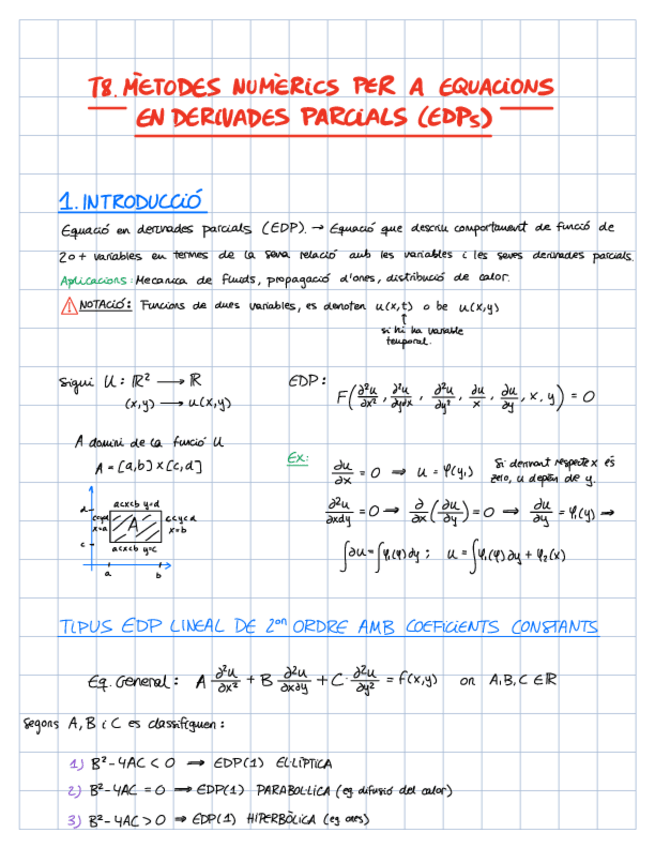 T8. MÈTODES NUMÈRICS PER A EQUACIONS
EN DERIVADES PARCIALS (EDPs)
1. INTRODUCCIÓ
Equació en derivades parcials (EDP). → Equació que descriu comportament de funció de
2 o + variables en termes de la seva relació amb les variables i les seves derivades parcials.
Aplicacions: Mecànica de fluids, propagació d'ones, distribució de calor.
NOTACIÓ: Funcions de dues variables, es denoten u(x,t) o bé u(x,y)
↑
si hi ha variable
temporal.
Sigui U: ℝ² → ℝ
(x,y) → u(x,y)
EDP:
F(∂²u/∂x², ∂²u/∂y∂x, ∂²u/∂y², ∂u/x, ∂u/∂y, x, y) = 0
A domini de la funció U
A = [a,b]x[c,d]
d
c
a
b
a<x<b y=d
c<y<d
x=a
A
c<y<d
x=b
a<x<b y=c
Ex:
∂u/∂x = 0 ⇒ u = φ(y,)
Si derivant respecte x és
zero, u depèn de y.
∂²u/∂x∂y = 0 → ∂/∂x (∂u/∂y) = 0 ⇒ ∂u/∂y = φ₁(y) ⇒
∫∂u = ∫φ₁(φ)∂y ; u = ∫φ₁(φ)∂y + φ₂(x)
TIPUS EDP LINEAL DE 2on ORDRE AMB COEFICIENTS CONSTANTS
Eq. General: A ∂²u/∂x² + B ∂²u/∂x∂y + C · ∂²u/∂y² = f(x,y) on A,B,C ∈ ℝ
Segons A, B i C es classifiquen:
1) B²-4AC < 0 ⇒ EDP(1) EL·LÍPTICA
2) B²-4AC = 0 ⇒ EDP(1) PARABÒL·LICA (eg difusió del calor)
3) B²-4AC > 0 ⇒ EDP(1) HIPERBÒLICA (eg ones)